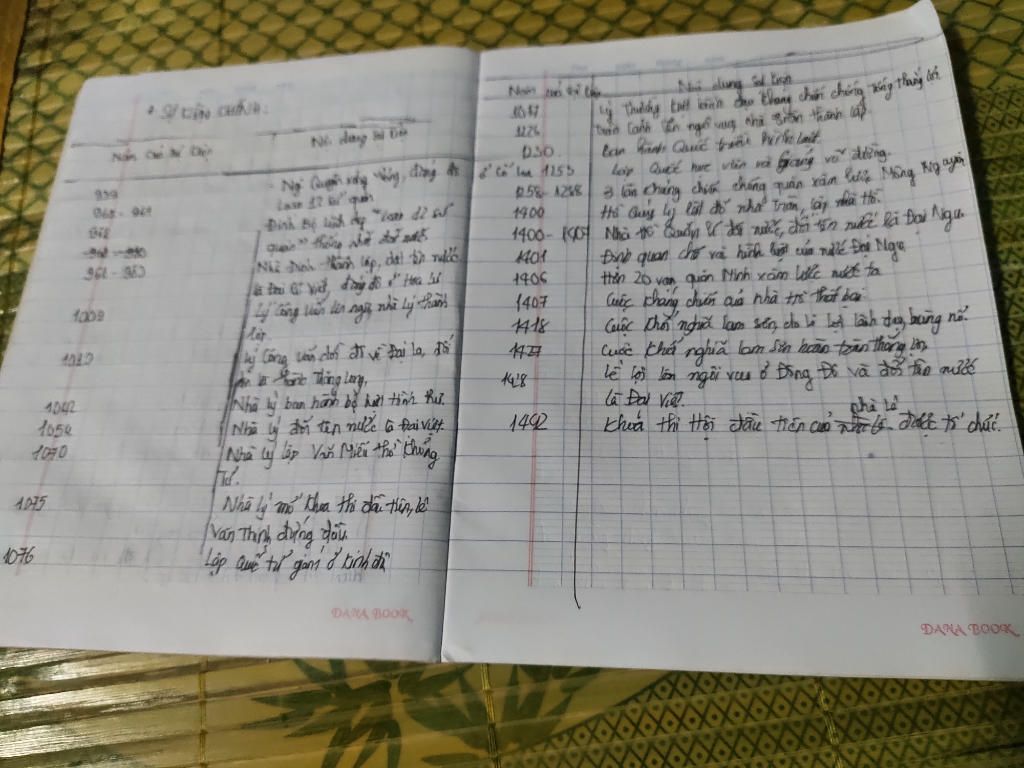 * SỰ KIỆN CHÍNH:
Năm Nội dung sự kiện
939 - Ngô Quyền xưng Vương, đóng đô
Loạn 12 sứ quân
Đinh Bộ Lĩnh dẹp "Loạn 12 sứ
968 quân" thống nhất đất nước
968 - 980 Nhà Đinh thành lập, đặt tên nước
là Đại Cồ Việt, đóng đô ở Hoa Lư
1009 Lý Công Uẩn lên ngôi, nhà Lý thành
lập
Lý Công Uẩn dời đô về Đại La, đổi
tên là thành Thăng Long,
1042 Nhà lý ban hành bộ luật Hình thư.
1054 Nhà lý đổi tên nước là Đại Việt.
1070 Nhà lý lập Văn Miếu thờ Khổng
Tử.
1075 Nhà lý mở khoa thi đầu tiên, lê
Văn Thịnh đứng đầu.
1076 Lập Quốc tử giám ở kinh đô
Năm Nội dung sự kiện
1077 Lý Thường Kiệt lãnh đạo kháng chiến chống Tống thắng lợi.
1226 Trần Cảnh lên ngôi vua, nhà Trần thành lập.
1230 Ban hành Quốc triều hình luật.
1253 Lập Quốc học viện và Giảng võ đường.
1258 - 1288 3 lần kháng chiến chống quân xâm lược Mông Nguyên
1400 Hồ Quý Ly lật đổ nhà Trần, lập nhà Hồ.
1400 - 1407 Nhà Hồ Quản lí đất nước, đổi tên nước là Đại Ngu.
1401 Định quan chế và hình luật của nước Đại Ngu
1406 Hơn 20 vạn quân Minh xâm lược nước ta
1407 Cuộc kháng chiến của nhà Hồ thất bại.
1418 Cuộc khởi nghĩa lam sơn, do lê lợi lãnh đạo, bùng nổ.
1427 Cuộc khởi nghĩa lam sơn hoàn toàn thắng lợi.
1428 lê lợi lên ngôi vua ở Đông Đô và đổi tên nước
là Đại Việt.
nhà Lê
1442 khoá thi Hội đầu tiên của được tổ chức.
DANA BOOK
DANA BOOK